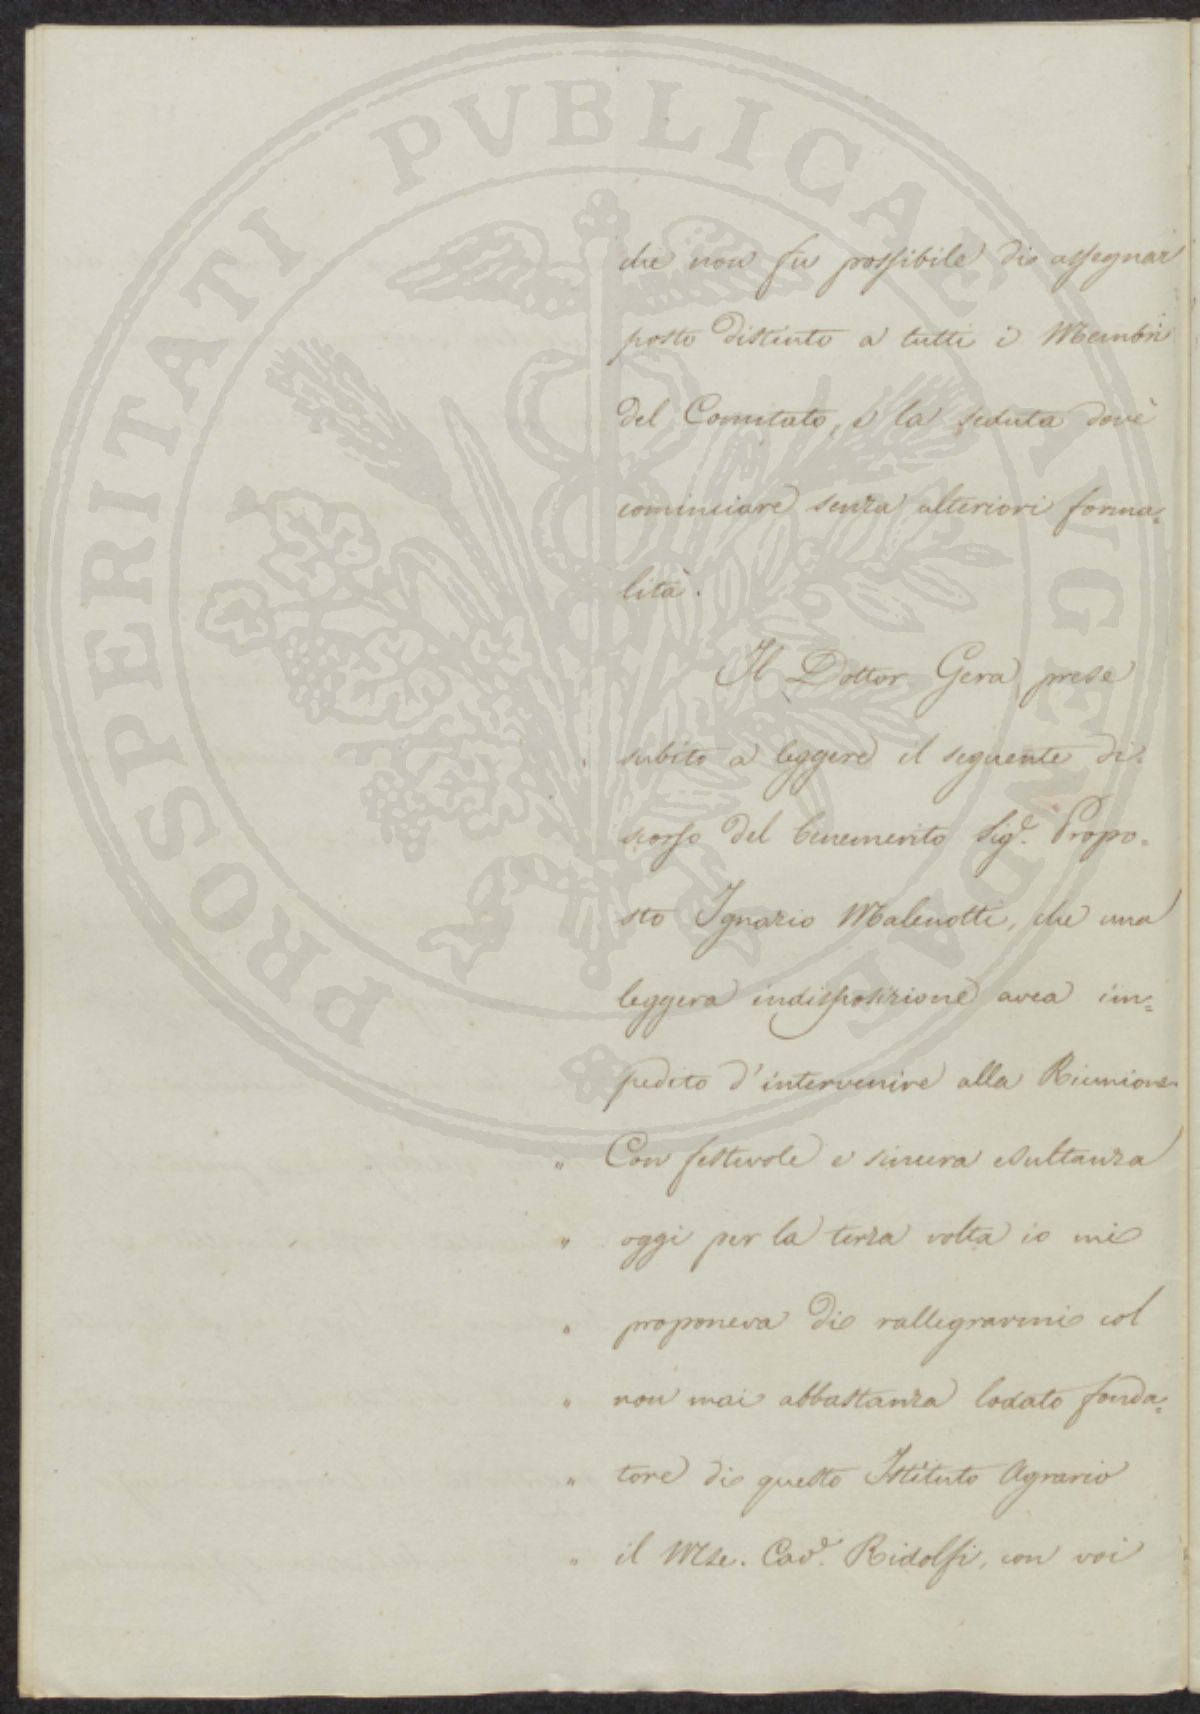 PROSPERITATI PVBLICAE AVGENDAE
che non fu possibile di assegnar
posto distinto a tutti i Membri
del Comitato, e la seduta dovè
cominciare senza ulteriori forma=
lità.
Il Dottor Gera prese
subito a leggere il seguente di=
scorso del benemerito Sigr. Propo=
sto Ignazio Malenotti, che una
leggera indisposizione avea im=
pedito d'intervenire alla Riunione.
" Con festevole e sincera esultanza
" oggi per la terza volta io mi
" proponeva di rallegrarmi col
" non mai abbastanza lodato fonda=
" tore di questo Istituto Agrario
" il Mse. Cavr. Ridolfi, con voi